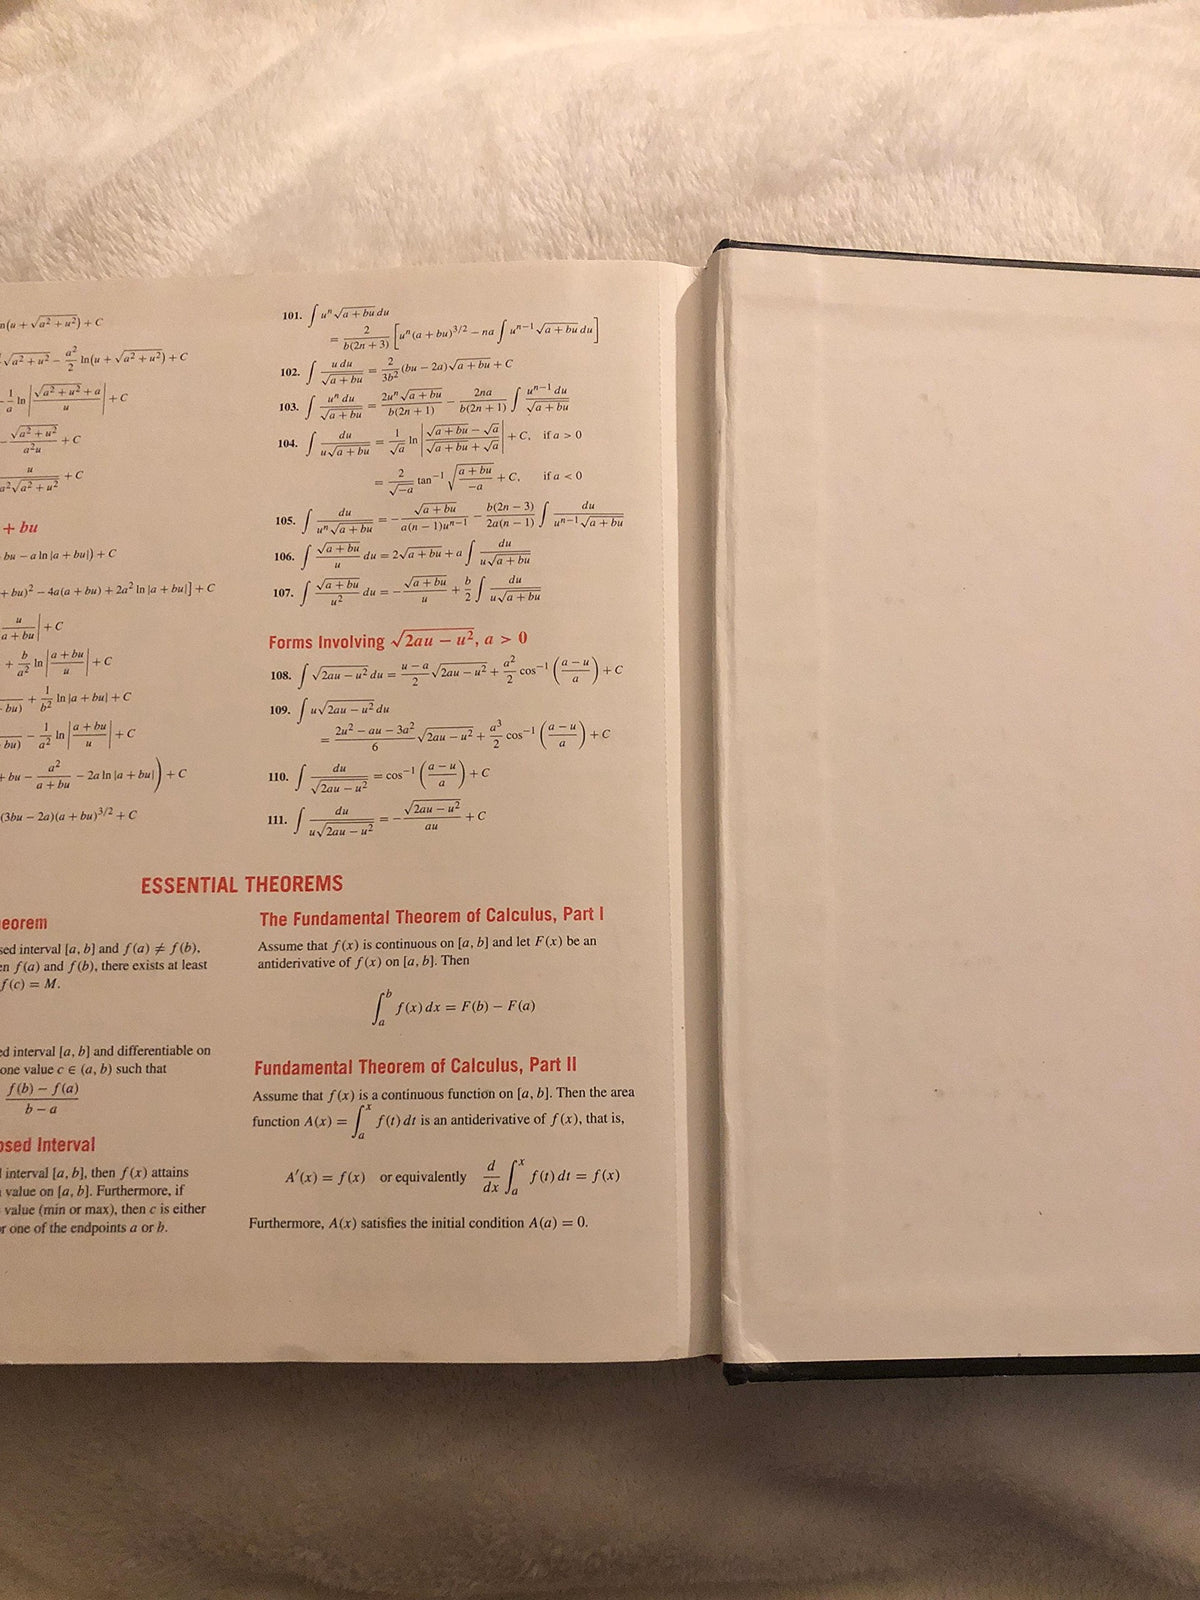 n(u + √(a² + u²)) + C
√(a² + u²) − a²/2 ln(u + √(a² + u²)) + C
1/a ln |(√(a² + u²) + a)/u| + C
− √(a² + u²)/(a²u) + C
u/(a²√(a² + u²)) + C
+ bu
bu − a ln |a + bu|) + C
+ bu)² − 4a(a + bu) + 2a² ln |a + bu|] + C
u/(a + bu)| + C
+ b/a² ln |(a + bu)/u| + C
bu) + 1/b² ln |a + bu| + C
bu) − 1/a² ln |(a + bu)/u| + C
+ bu − a²/(a + bu) − 2a ln |a + bu|) + C
(3bu − 2a)(a + bu)^(3/2) + C
101. ∫ uⁿ√(a + bu) du
= 2/(b(2n + 3)) [uⁿ(a + bu)^(3/2) − na ∫ uⁿ⁻¹√(a + bu) du]
102. ∫ u du/√(a + bu) = 2/(3b²) (bu − 2a)√(a + bu) + C
103. ∫ uⁿ du/√(a + bu) = 2uⁿ√(a + bu)/(b(2n + 1)) − 2na/(b(2n + 1)) ∫ uⁿ⁻¹ du/√(a + bu)
104. ∫ du/(u√(a + bu)) = 1/√a ln |(√(a + bu) − √a)/(√(a + bu) + √a)| + C, if a > 0
= 2/√(−a) tan⁻¹ √((a + bu)/(−a)) + C, if a < 0
105. ∫ du/(uⁿ√(a + bu)) = − √(a + bu)/(a(n − 1)uⁿ⁻¹) − b(2n − 3)/(2a(n − 1)) ∫ du/(uⁿ⁻¹√(a + bu))
106. ∫ √(a + bu)/u du = 2√(a + bu) + a ∫ du/(u√(a + bu))
107. ∫ √(a + bu)/u² du = − √(a + bu)/u + b/2 ∫ du/(u√(a + bu))
Forms Involving √(2au − u²), a > 0
108. ∫ √(2au − u²) du = (u − a)/2 √(2au − u²) + a²/2 cos⁻¹ ((a − u)/a) + C
109. ∫ u√(2au − u²) du
= (2u² − au − 3a²)/6 √(2au − u²) + a³/2 cos⁻¹ ((a − u)/a) + C
110. ∫ du/√(2au − u²) = cos⁻¹ ((a − u)/a) + C
111. ∫ du/(u√(2au − u²)) = − √(2au − u²)/(au) + C
ESSENTIAL THEOREMS
eorem
sed interval [a, b] and f(a) ≠ f(b),
en f(a) and f(b), there exists at least
f(c) = M.
ed interval [a, b] and differentiable on
one value c ∈ (a, b) such that
(f(b) − f(a))/(b − a)
osed Interval
l interval [a, b], then f(x) attains
value on [a, b]. Furthermore, if
value (min or max), then c is either
or one of the endpoints a or b.
The Fundamental Theorem of Calculus, Part I
Assume that f(x) is continuous on [a, b] and let F(x) be an
antiderivative of f(x) on [a, b]. Then
∫ₐᵇ f(x) dx = F(b) − F(a)
Fundamental Theorem of Calculus, Part II
Assume that f(x) is a continuous function on [a, b]. Then the area
function A(x) = ∫ₐˣ f(t) dt is an antiderivative of f(x), that is,
A′(x) = f(x) or equivalently d/dx ∫ₐˣ f(t) dt = f(x)
Furthermore, A(x) satisfies the initial condition A(a) = 0.